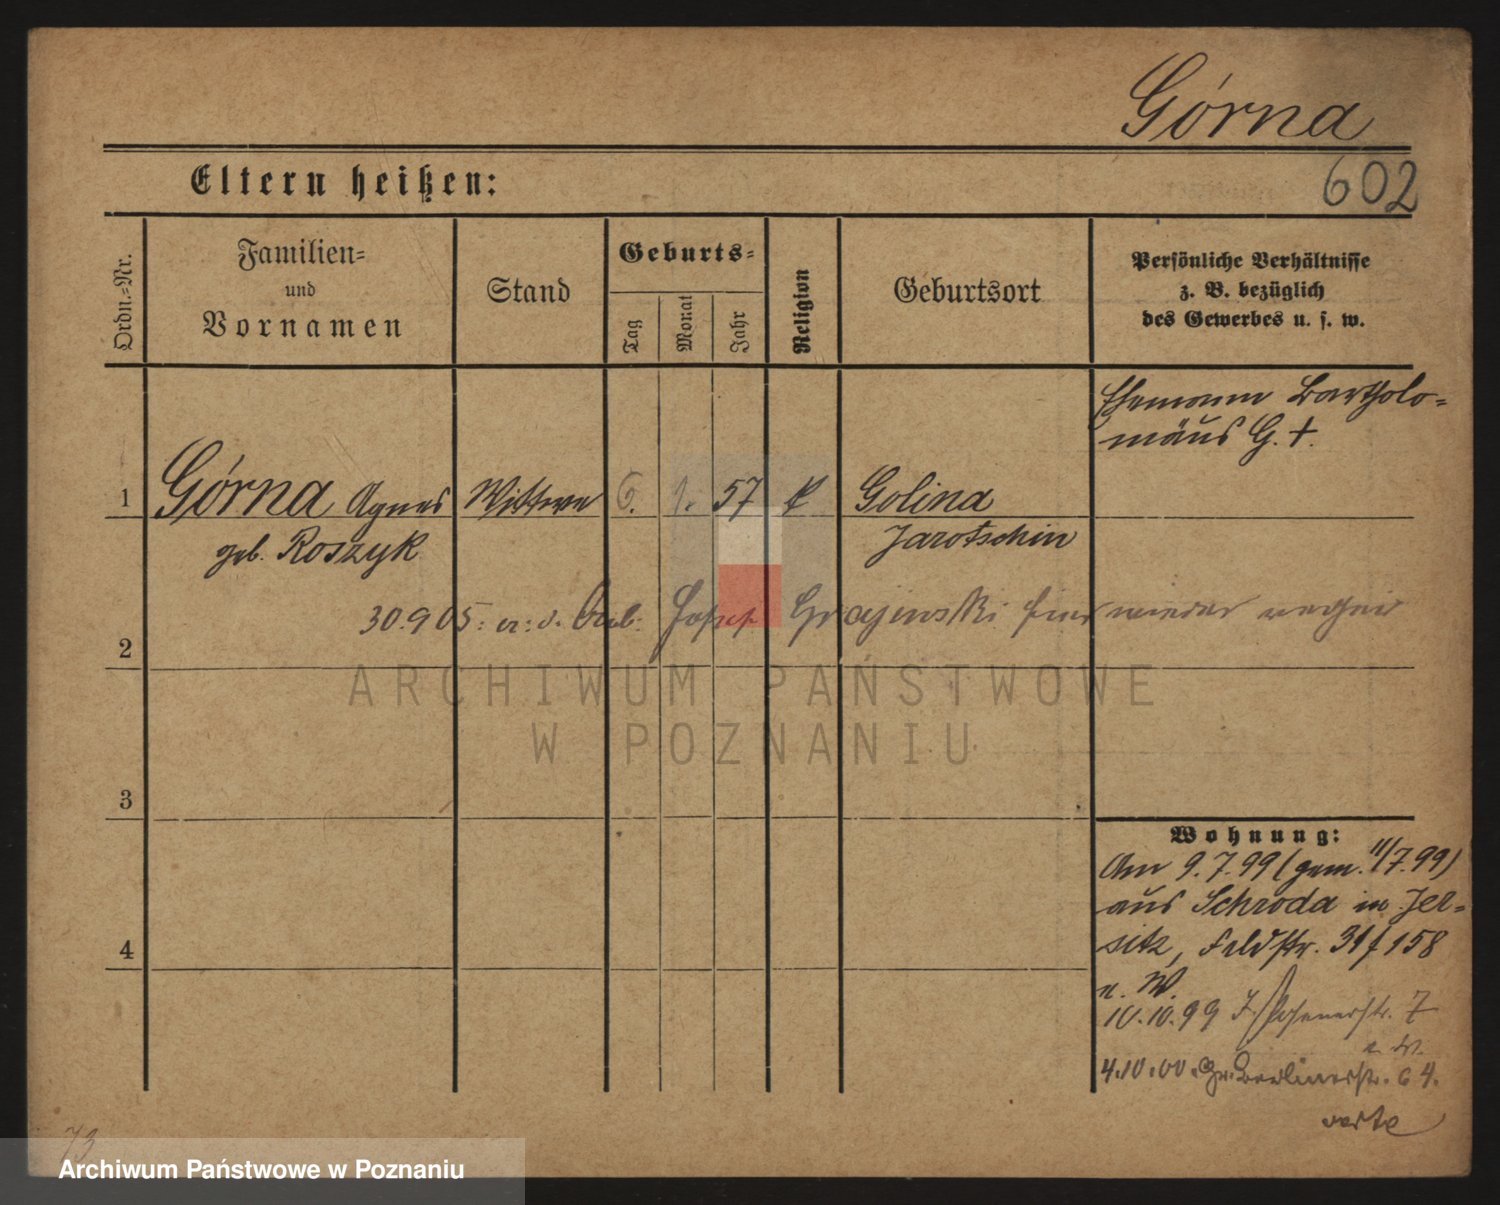 Górna
602
Eltern heißen:
Ordn.-Nr.
Familien-
und
Vornamen
Stand
Geburts-
Tag
Monat
Jahr
Religion
Geburtsort
Persönliche Verhältnisse
z. B. bezüglich
des Gewerbes u. s. w.
Ehemann Bartholo-
mäus G. †.
1 Górna Agnes Wittwe 6. 1. 57 k Golina
geb. Roszyk Jarotschin
30.9.05: Josef Grajewski wieder
2
ARCHIWUM PAŃSTWOWE
W POZNANIU
3
Wohnung:
Am 9.7.99 (gem. 11/7.99)
aus Schroda in Jer-
sitz, Feldstr. 31 f 158
4
n. W.
10.10.99 J. Posenerstr. 7
n. W.
4.10.00. Gr. Berlinerstr. 64.
verte
73
Archiwum Państwowe w Poznaniu